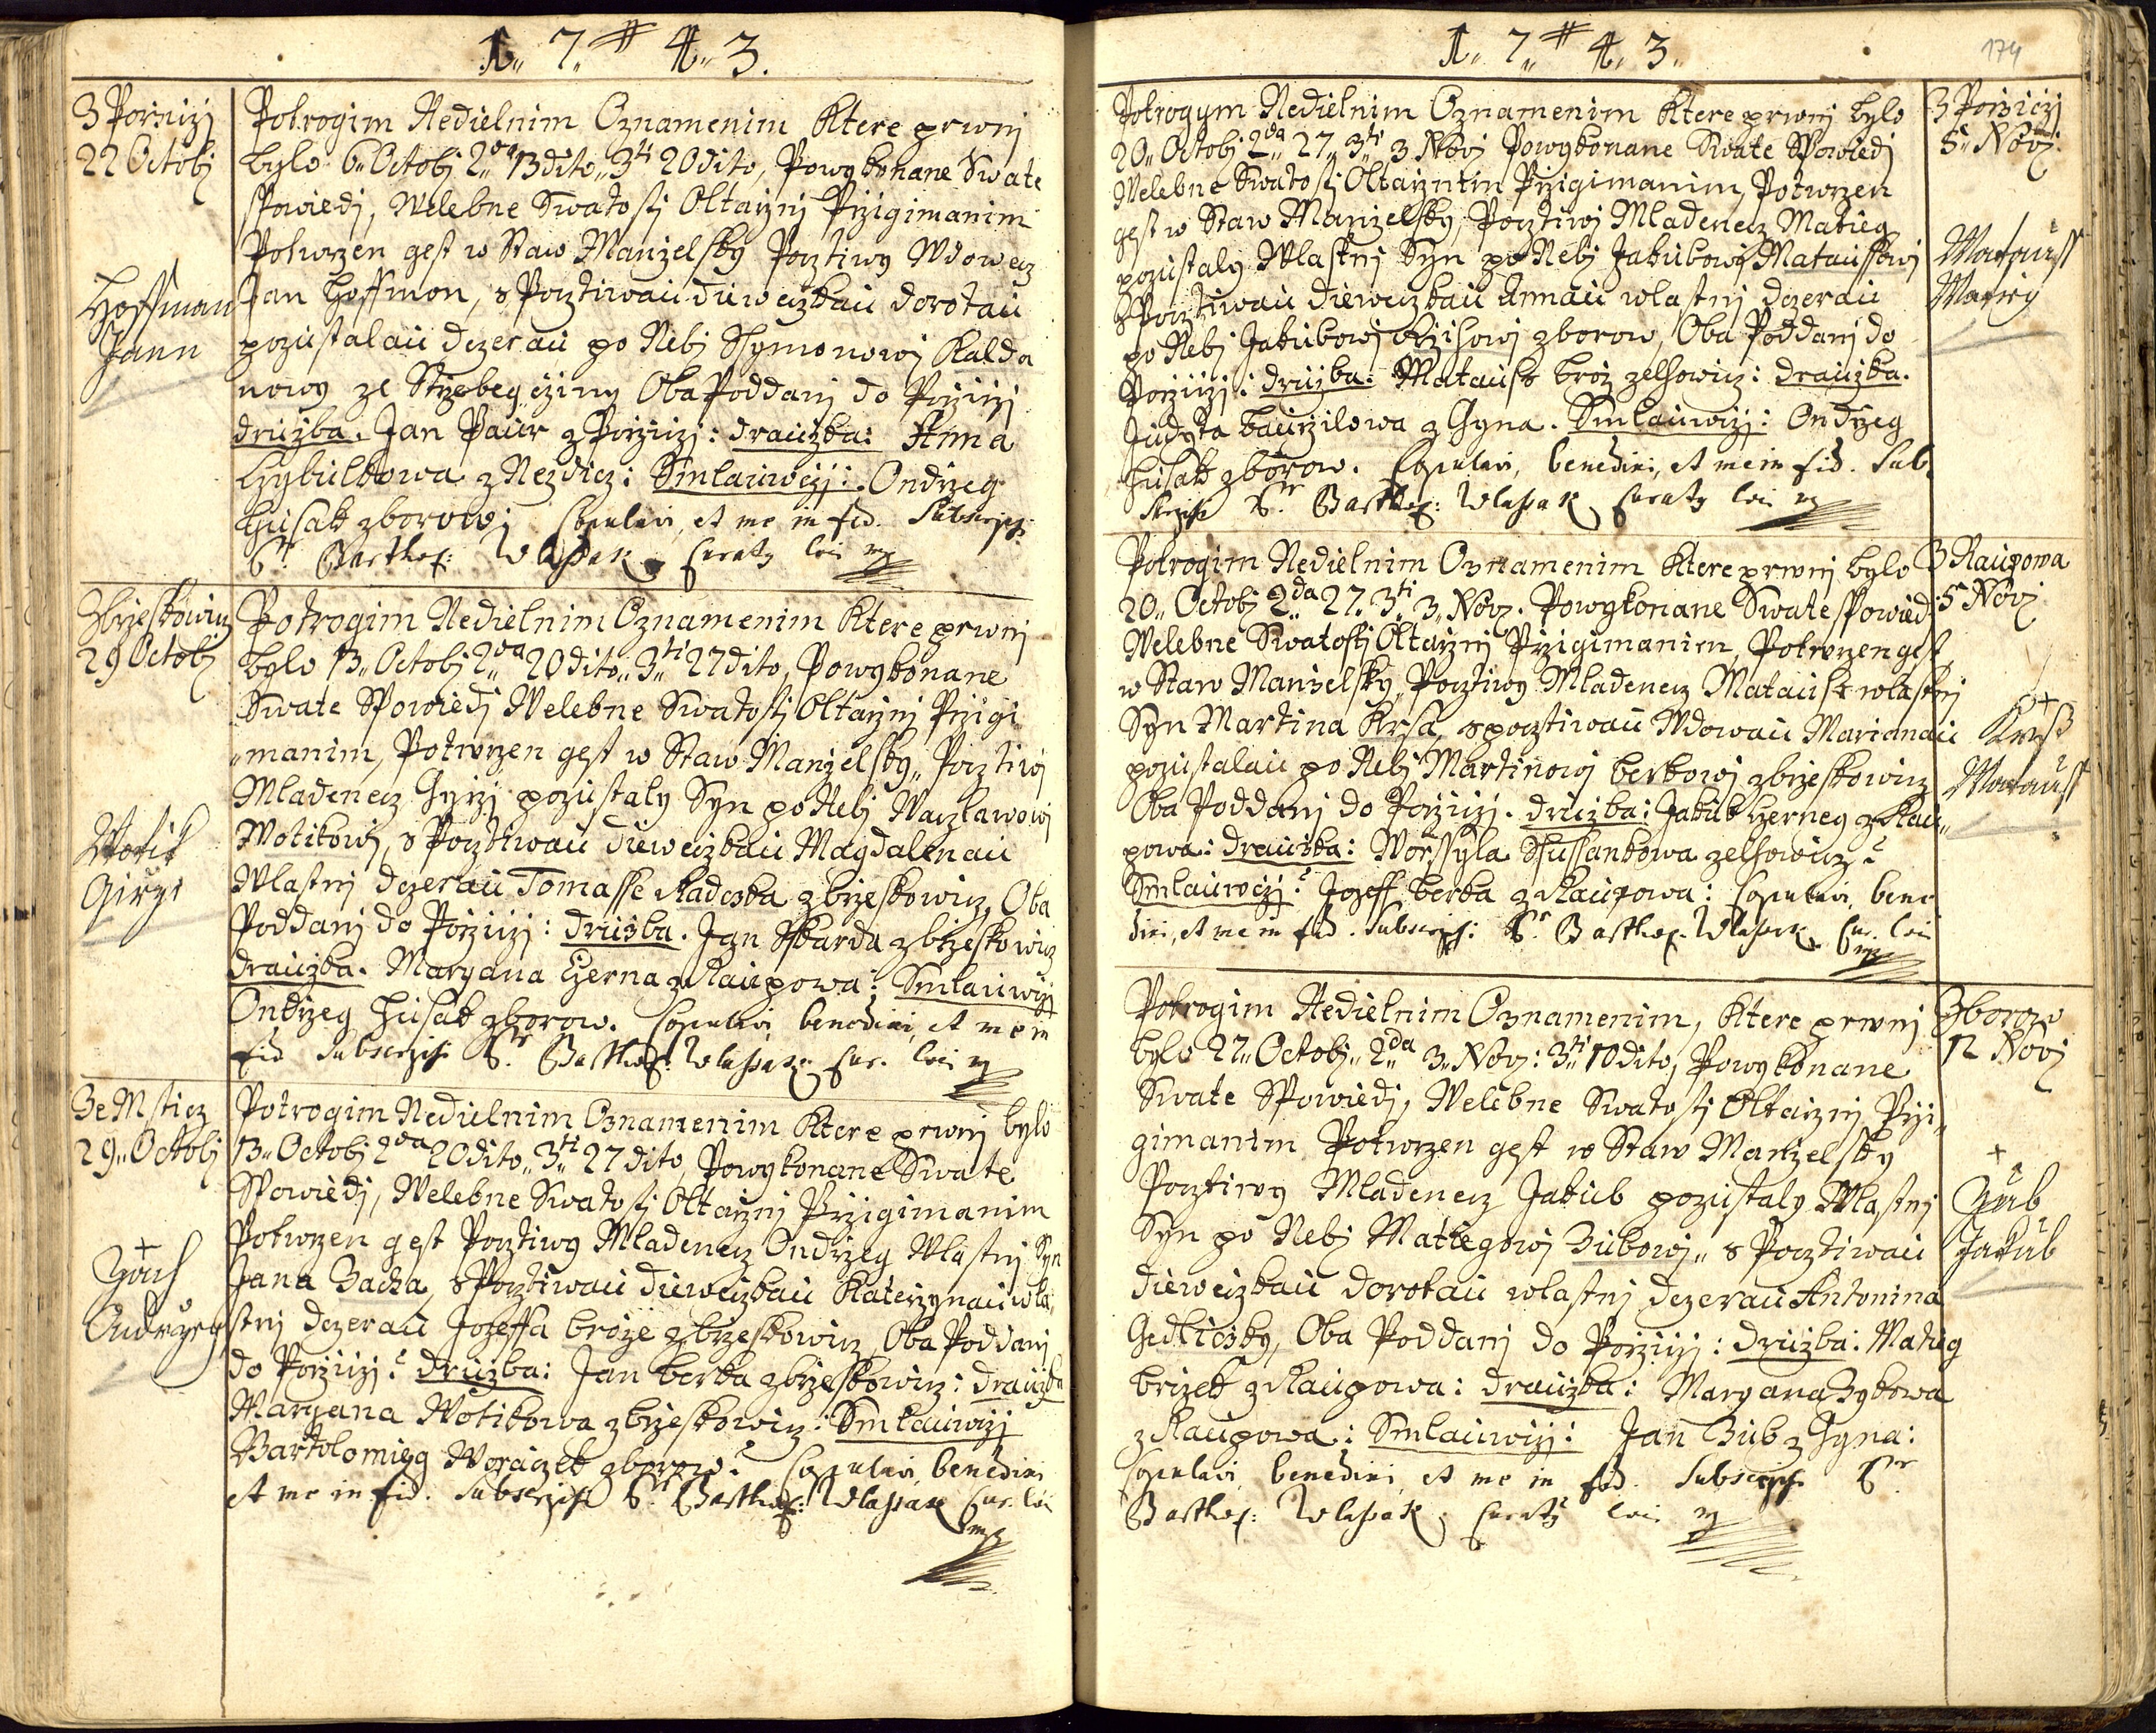 1. 7. 4. 3.
3 Porziczj
22 Octobj
Hoffman
Jann
Potrogim Nedielnim Oznamenim Ktere prwnj
bylo 6 Octobj 2da 13 dito 3ti 20 dito, Powykonane Swate
Spowiedj, Welebne Swatostj Oltarznj Przigimanim
Potwrzen gest w Staw Manzelsky Pocztiwy Wdowecz
Jan Hoffmon, s Pocztiwau diewczkau dorotau
pozustalau dczerau po Nebj Ssymonowj Kalda
nowy ze Strzebegcziny Oba Poddanj do Porziczj
druzba. Jan Paur z Porziczj: drauzka: Anna
Czybulkowa z Nezdicz: Smlauwczj: Ondrzeg
Husak zborow; Copulavi, et me in fid. Subscripsi
Pr. Barthol: Wlassak, Curatq loci mp
Zbrzeskowicz
29 Octobj
Wotik
Girzi
Potrogim Nedielnim Oznamenim Ktere prwnj
bylo 13 Octobj 2da 20 dito 3ti 27 dito, Powykonane
Swate Spowiedj Welebne Swatostj Oltarznj Przigi
manim, Potwrzen gest w Staw Manzelsky Pocztiwj
Mladenecz Gyrzj pozustaly Syn po Nebj Waczlawowj
Wotikowj, s Pocztiwau diewczkau Magdalenau
Wlastnj dczerau Tomasse Kadeska zbrzeskowicz, Oba
Poddanj do Porziczj: druzba. Jan Skarda zbrzeskowicz
drauzka. Maryana Czerna z Raupowa: Smlauwczj
Ondrzeg Husak zborow. Copulavi benedixi, et me in
fid Subscripsi Pr. Barthol: Wlassak Cur. loci mp
Ze Msticz
29 Octobj
Zach
Andrzeg
Potrogim Nedielnim Oznamenim Ktere prwnj bylo
13 Octobj 2da 20 dito 3ti 27 dito, Powykonane Swate
Spowiedj, Welebne Swatostj Oltarznj Przigimanim
Potwrzen gest Pocztiwy Mladenecz Ondrzeg Wlastnj Syn
Jana Zacha, s Pocztiwau diewczkau Katerzynau wla
stnj dczerau Jozeffa broze zbrzeskowicz, Oba Poddanj
do Porziczj: druzba: Jan berka zbrzeskowicz: drauzka
Maryana Wotikowa zbrzeskowicz: Smlauwczj
Bartolomieg Woraczek zborow: Copulavi, benedixi
et me in fid. Subscripsi Pr. Barthol: Wlassak Cur. loci
mp
1. 7. 4. 3.
174
Potrogym Nedielnim Oznamenim Ktere prwnj bylo
20 Octobj 2da 27 3ti 3 Novj Powykonane Swate Spowiedj
Welebne Swatostj Oltarznim Przigimanim, Potwrzen
gest w Staw Manzelsky, Pocztiwj Mladenecz Matieg
pozustaly Wlastnj Syn po Nebj Jakubowj Mataussowj
s Pocztiwau diewczkau Annau wlastnj dczerau
po Nebj Jakubowj zborow, Oba Poddanj do
Porziczj: druzba: Matauss broz zelhowicz: drauzka.
Judyta baurzilowa z Gyna. Smlauwczj: Ondrzeg
Husak zborow. Copulavi, benedixi, et me in fid. Sub
Scripsi Pr. Barthol: Wlassak Curatq loci mp
3 Porziczj
5 Novj
Matauss
Matieg
Potrogim Nedielnim Oznamenim Ktere prwnj bylo
20 Octobj 2da 27. 3ti 3 Novj. Powykonane Swate Spowied
Welebne Swatostj Oltarznj Przigimanim, Potwrzen gest
w Staw Manzelsky Pocztiwy Mladenecz Matauss wlastnj
Syn Martina Krsa, s pocztiwau Wdowau Marianau
pozustalau po Nebj Martinowj berkowj zbrzeskowicz
Oba Poddanj do Porziczj. druzba: Jakub Czerney z Rau
powa: drauzka: Worssyla Sussankowa zelhowicz:
Smlauwczj: Jozeff berka z Raupowa: Copulavi, bene
dixi, et me in fid. Subscripsi: Pr. Barthol. Wlassak Cur. loci
mp
3 Raupowa
5 Novj
Krss
Matauss
Potrogim Nedielnim Oznamenim, Ktere prwnj
bylo 27 Octobj 2da 3 Novj: 3ti 10 dito, Powykonane
Swate Spowiedj, Welebne Swatostj Oltarznj Przi
gimanim Potwrzen gest w Staw Manzelsky
Pocztiwy Mladenecz Jakub pozustaly Wlastnj
Syn po Nebj Mattegowj Zubowj, s Pocztiwau
diewczkau dorotau wlastnj dczerau Antonina
Gedlicsky, Oba Poddanj do Porziczj: druzba: Matieg
brizek z Raupowa: drauzka: Maryana Zykowa
z Raupowa: Smlauwczj: Jan Zub z Gyna:
Copulavi benedixi et me in fid. Subscripsi Pr
Barthol: Wlassak, Curatq loci mp
Zborow
12 Novj
Zub
Jakub